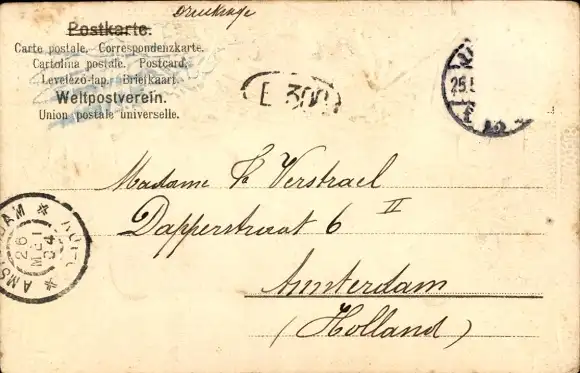 Drucksache
Postkarte.
Carte postale. Correspondenzkarte.
Cartolina postale. Postcard.
Levelező-lap. Briefkaart.
Weltpostverein.
Union postale universelle.
E 300
25.
Madame Verstrael
Dapperstraat 6 II
Amsterdam
(Holland)
AMSTERDAM
26 MEI 04